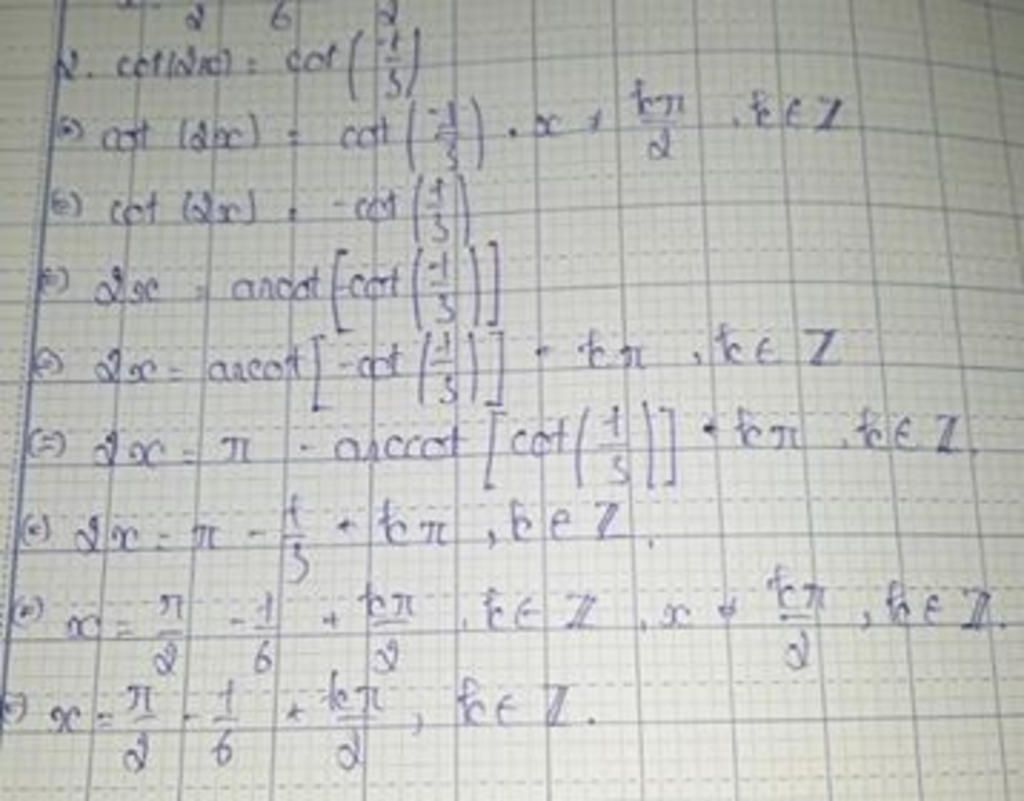 2 6 2
2. cot(2x) = cot(-1/3)
(=) cot (2x) = cot(-1/3), x ≠ kπ/2, k ∈ Z
(=) cot (2x) = -cot(1/3)
(=) 2x = arccot[-cot(1/3)]
(=) 2x = arccot[-cot(1/3)] + kπ, k ∈ Z
(=) 2x = π - arccot[cot(1/3)] + kπ, k ∈ Z.
(=) 2x = π - 1/3 + kπ, k ∈ Z.
(=) x = π/2 - 1/6 + kπ/2, k ∈ Z, x ≠ kπ/2, k ∈ Z.
(=) x = π/2 - 1/6 + kπ/2, k ∈ Z.